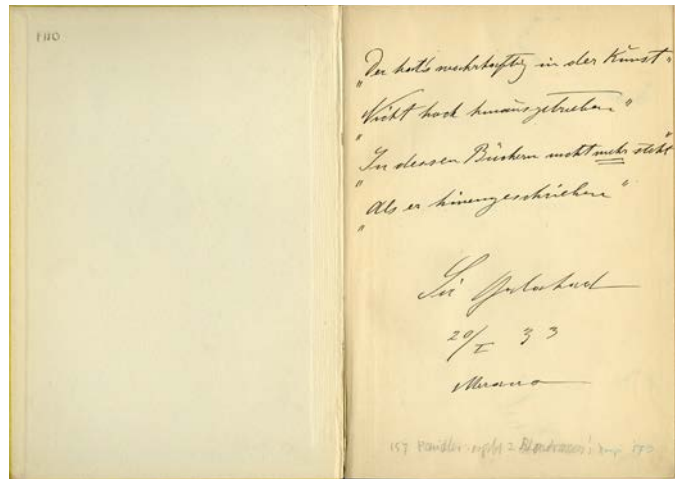 1110
"Der hat's wahrhaftig in der Kunst"
"Nicht hoch hinausgetrieben"
"In dessen Büchern nicht mehr steht"
"Als er hineingeschrieben"
Sir Galahad
20/I 33
Merano
157